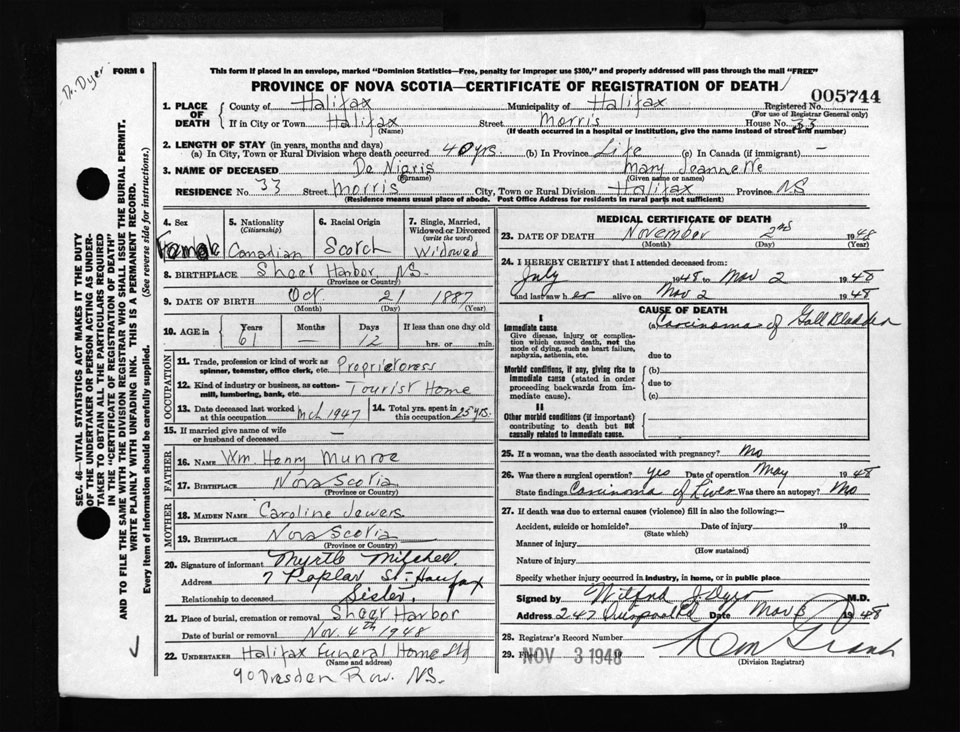 Dr. Dyer
FORM 6
This form if placed in an envelope, marked "Dominion Statistics—Free, penalty for improper use $300," and properly addressed will pass through the mail "FREE"
PROVINCE OF NOVA SCOTIA—CERTIFICATE OF REGISTRATION OF DEATH
005744
1. PLACE OF DEATH County of Halifax Municipality of Halifax Registered No.
(For use of Registrar General only)
If in City or Town Halifax Street Morris House No. 33
(Name) (If death occurred in a hospital or institution, give the name instead of street and number)
2. LENGTH OF STAY (in years, months and days)
(a) In City, Town or Rural Division where death occurred 40 yrs. (b) In Province Life (c) In Canada (if immigrant) —
3. NAME OF DECEASED De Nigris Mary Jeannette
(Surname) (Given name or names)
RESIDENCE No. 33 Street Morris City, Town or Rural Division Halifax Province NS
(Residence means usual place of abode. Post Office Address for residents in rural parts not sufficient)
4. Sex 5. Nationality 6. Racial Origin 7. Single, Married,
(Citizenship) Widowed or Divorced
(write the word)
Female Canadian Scotch Widowed
8. BIRTHPLACE Sheet Harbor, NS.
(Province or Country)
9. DATE OF BIRTH Oct 21 1887
(Month) (Day) (Year)
10. AGE in Years Months Days If less than one day old
61 — 12 hrs. or min.
OCCUPATION
11. Trade, profession or kind of work as
spinner, teamster, office clerk, etc. Proprietoress
12. Kind of industry or business, as cotton-
mill, lumbering, bank, etc. Tourist Home
13. Date deceased last worked at this occupation Mch 1947 14. Total yrs. spent in this occupation 25 yrs.
15. If married give name of wife
or husband of deceased —
FATHER
16. NAME Wm. Henry Munroe
17. BIRTHPLACE Nova Scotia
(Province or Country)
MOTHER
18. MAIDEN NAME Caroline Jewers
19. BIRTHPLACE Nova Scotia
(Province or Country)
20. Signature of informant Myrtle Mitchell.
Address 7 Poplar St- Halifax
Relationship to deceased Sister.
21. Place of burial, cremation or removal Sheet Harbor
Date of burial or removal Nov. 4th 1948
22. UNDERTAKER Halifax Funeral Home Ltd
(Name and address)
90 Dresden Row. NS.
MEDICAL CERTIFICATE OF DEATH
23. DATE OF DEATH November 2nd 1948
(Month) (Day) (Year)
24. I HEREBY CERTIFY that I attended deceased from:
July 1948 to Nov 2 1948
and last saw her alive on Nov 2 1948
CAUSE OF DEATH
I
Immediate cause (a) Carcinoma of Gall Bladder
Give disease, injury or complication
which caused death, not the
mode of dying, such as heart failure,
asphyxia, asthenia, etc. due to
Morbid conditions, if any, giving rise to (b)
immediate cause (stated in order due to
proceeding backwards from immediate
cause). (c)
II
Other morbid conditions (if important)
contributing to death but not
causally related to immediate cause.
25. If a woman, was the death associated with pregnancy? No
26. Was there a surgical operation? yes Date of operation May 1948
State findings Carcinoma of Liver Was there an autopsy? No
27. If death was due to external causes (violence) fill in also the following:—
Accident, suicide or homicide? Date of injury 19
(State which)
Manner of injury
(How sustained)
Nature of injury
Specify whether injury occurred in industry, in home, or in public place
Signed by Wilfred J Dyer M.D.
Address 247 Quinpool Rd Date Nov 3 1948
28. Registrar's Record Number
29. NOV 3 1948
(Division Registrar)
SEC. 46—VITAL STATISTICS ACT MAKES IT THE DUTY
OF THE UNDERTAKER OR PERSON ACTING AS UNDER-
TAKER TO OBTAIN ALL THE PARTICULARS REQUIRED
IN THE "CERTIFICATE OF REGISTRATION OF DEATH"
AND TO FILE THE SAME WITH THE DIVISION REGISTRAR WHO SHALL ISSUE THE BURIAL PERMIT.
WRITE PLAINLY WITH UNFADING INK. THIS IS A PERMANENT RECORD.
Every item of information should be carefully supplied. (See reverse side for instructions.)